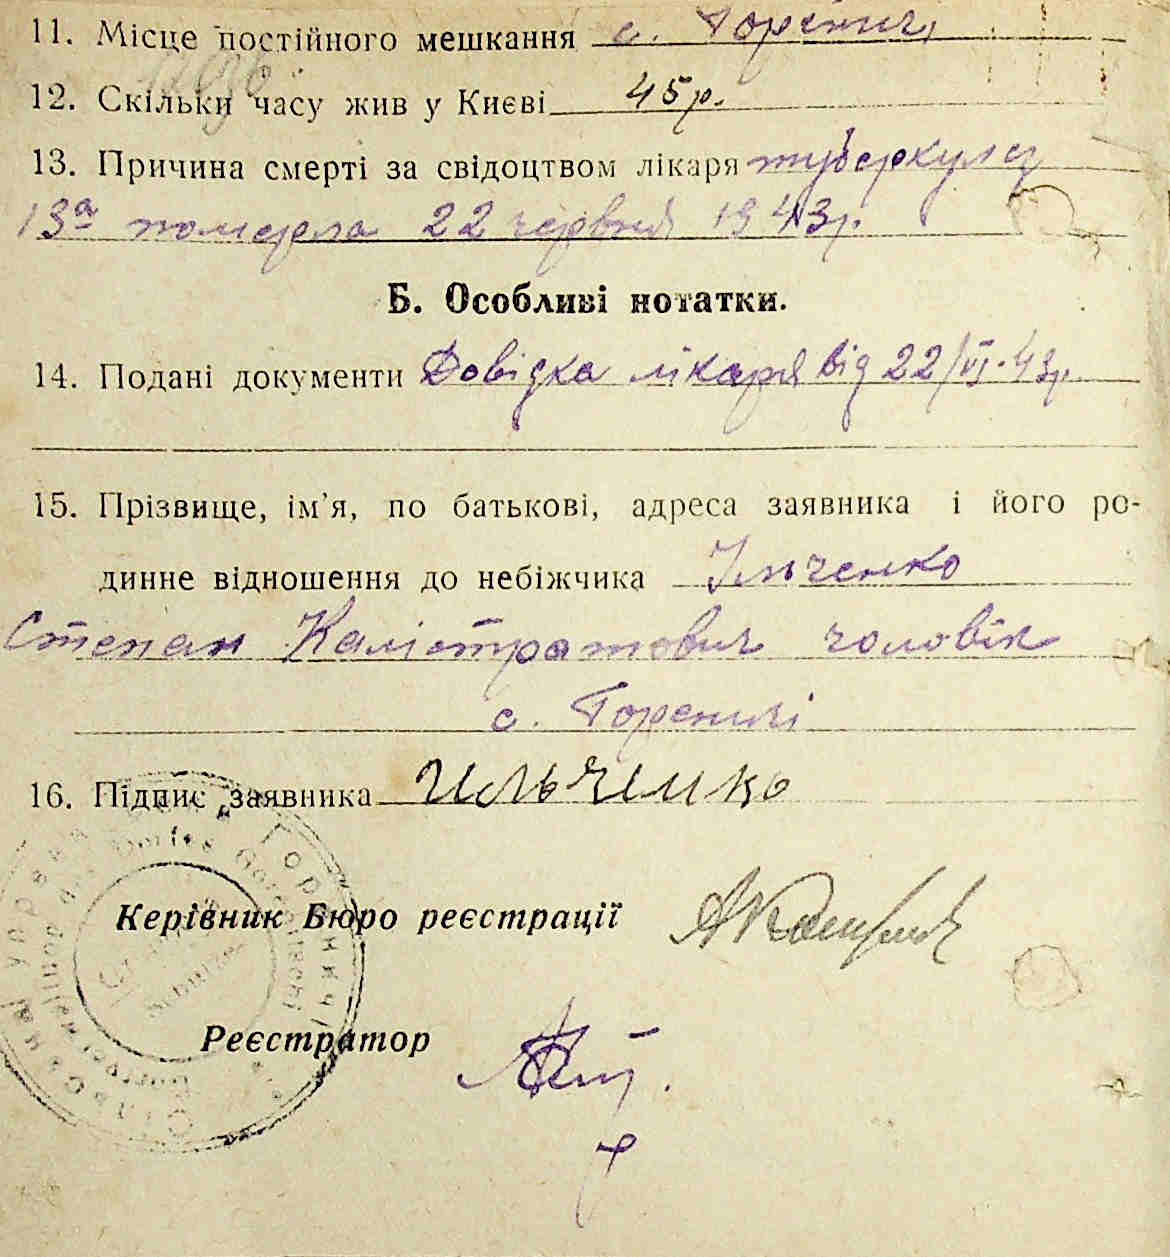 11. Місце постійного мешкання с. Гореничі
12. Скільки часу жив у Києві 45 р.
13. Причина смерті за свідоцтвом лікаря туберкульоз
13а померла 22 червня 1943 р.
Б. Особливі нотатки.
14. Подані документи Довідка лікаря від 22/VI-43р.
15. Прізвище, ім'я, по батькові, адреса заявника і його ро-
динне відношення до небіжчика Ільченко
Степан Калістратович чоловік
с. Гореничі
16. Підпис заявника Ильченко
Керівник Бюро реєстрації
Реєстратор